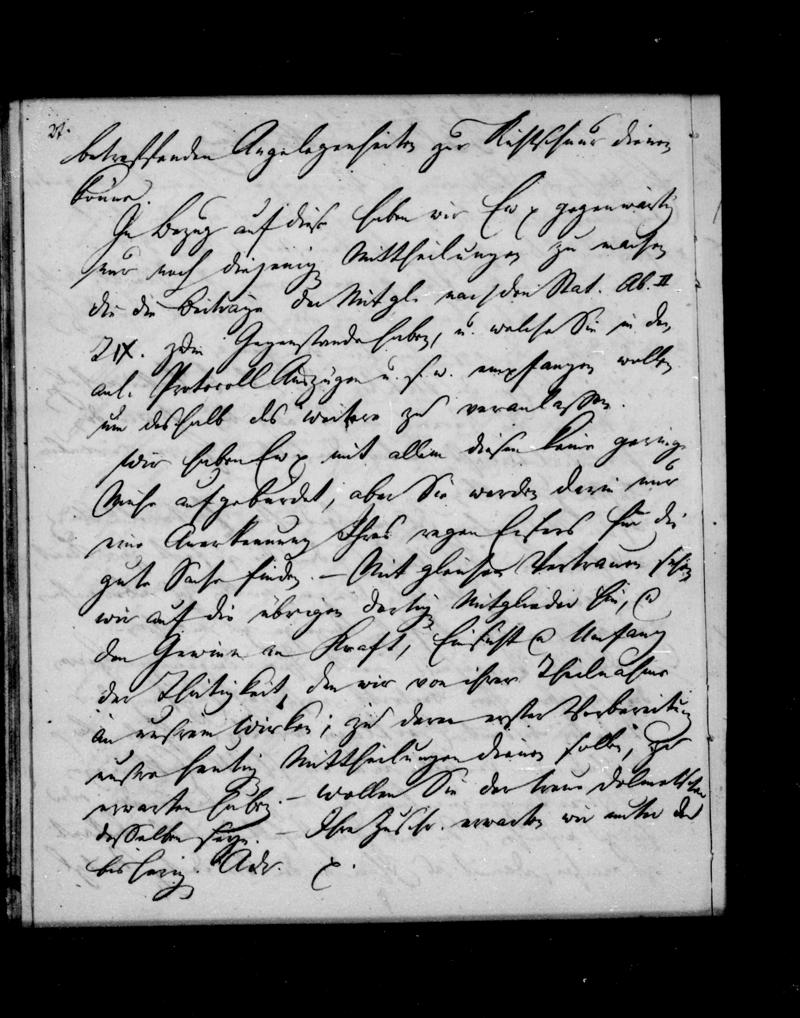 27.
betreffenden Angelegenheiten zur Richtschnur dienen
könne.
In Bezug auf diese haben wir Ew ꝛ gegenwärtig
nur noch diejenigen Mittheilungen zu machen
die die Beiträge der Mitgl. nach den Stat. Ab. II
IX. zum Gegenstande haben, u. welche Sie in den
anl. Protocoll Auszügen u. s. w. empfangen wollen
um deshalb das weitere zu veranlassen.
Wir haben Ew ꝛ mit allem diesen keine geringe
Mühe aufgebürdet, aber Sie werden darin nur
eine Anerkennung Ihres regen Eifers für die
gute Sache finden. – Mit gleichem Vertrauen sehen
wir auf die übrigen dortigen Mitglieder hin, u
den Gewinn an Kraft, Einsicht u Umfang
der Thätigkeit, den wir von ihrer Theilnahme
an unsrem Wirken; zu deren erster Vorbereitung
unsre heutigen Mittheilungen dienen sollen, zu
erwarten haben. – Wollen Sie der treue Dolmetscher
desselben seyn. – Ihre Zuschr. erwarten wir unter der
bisherig. Adr. ꝛ.